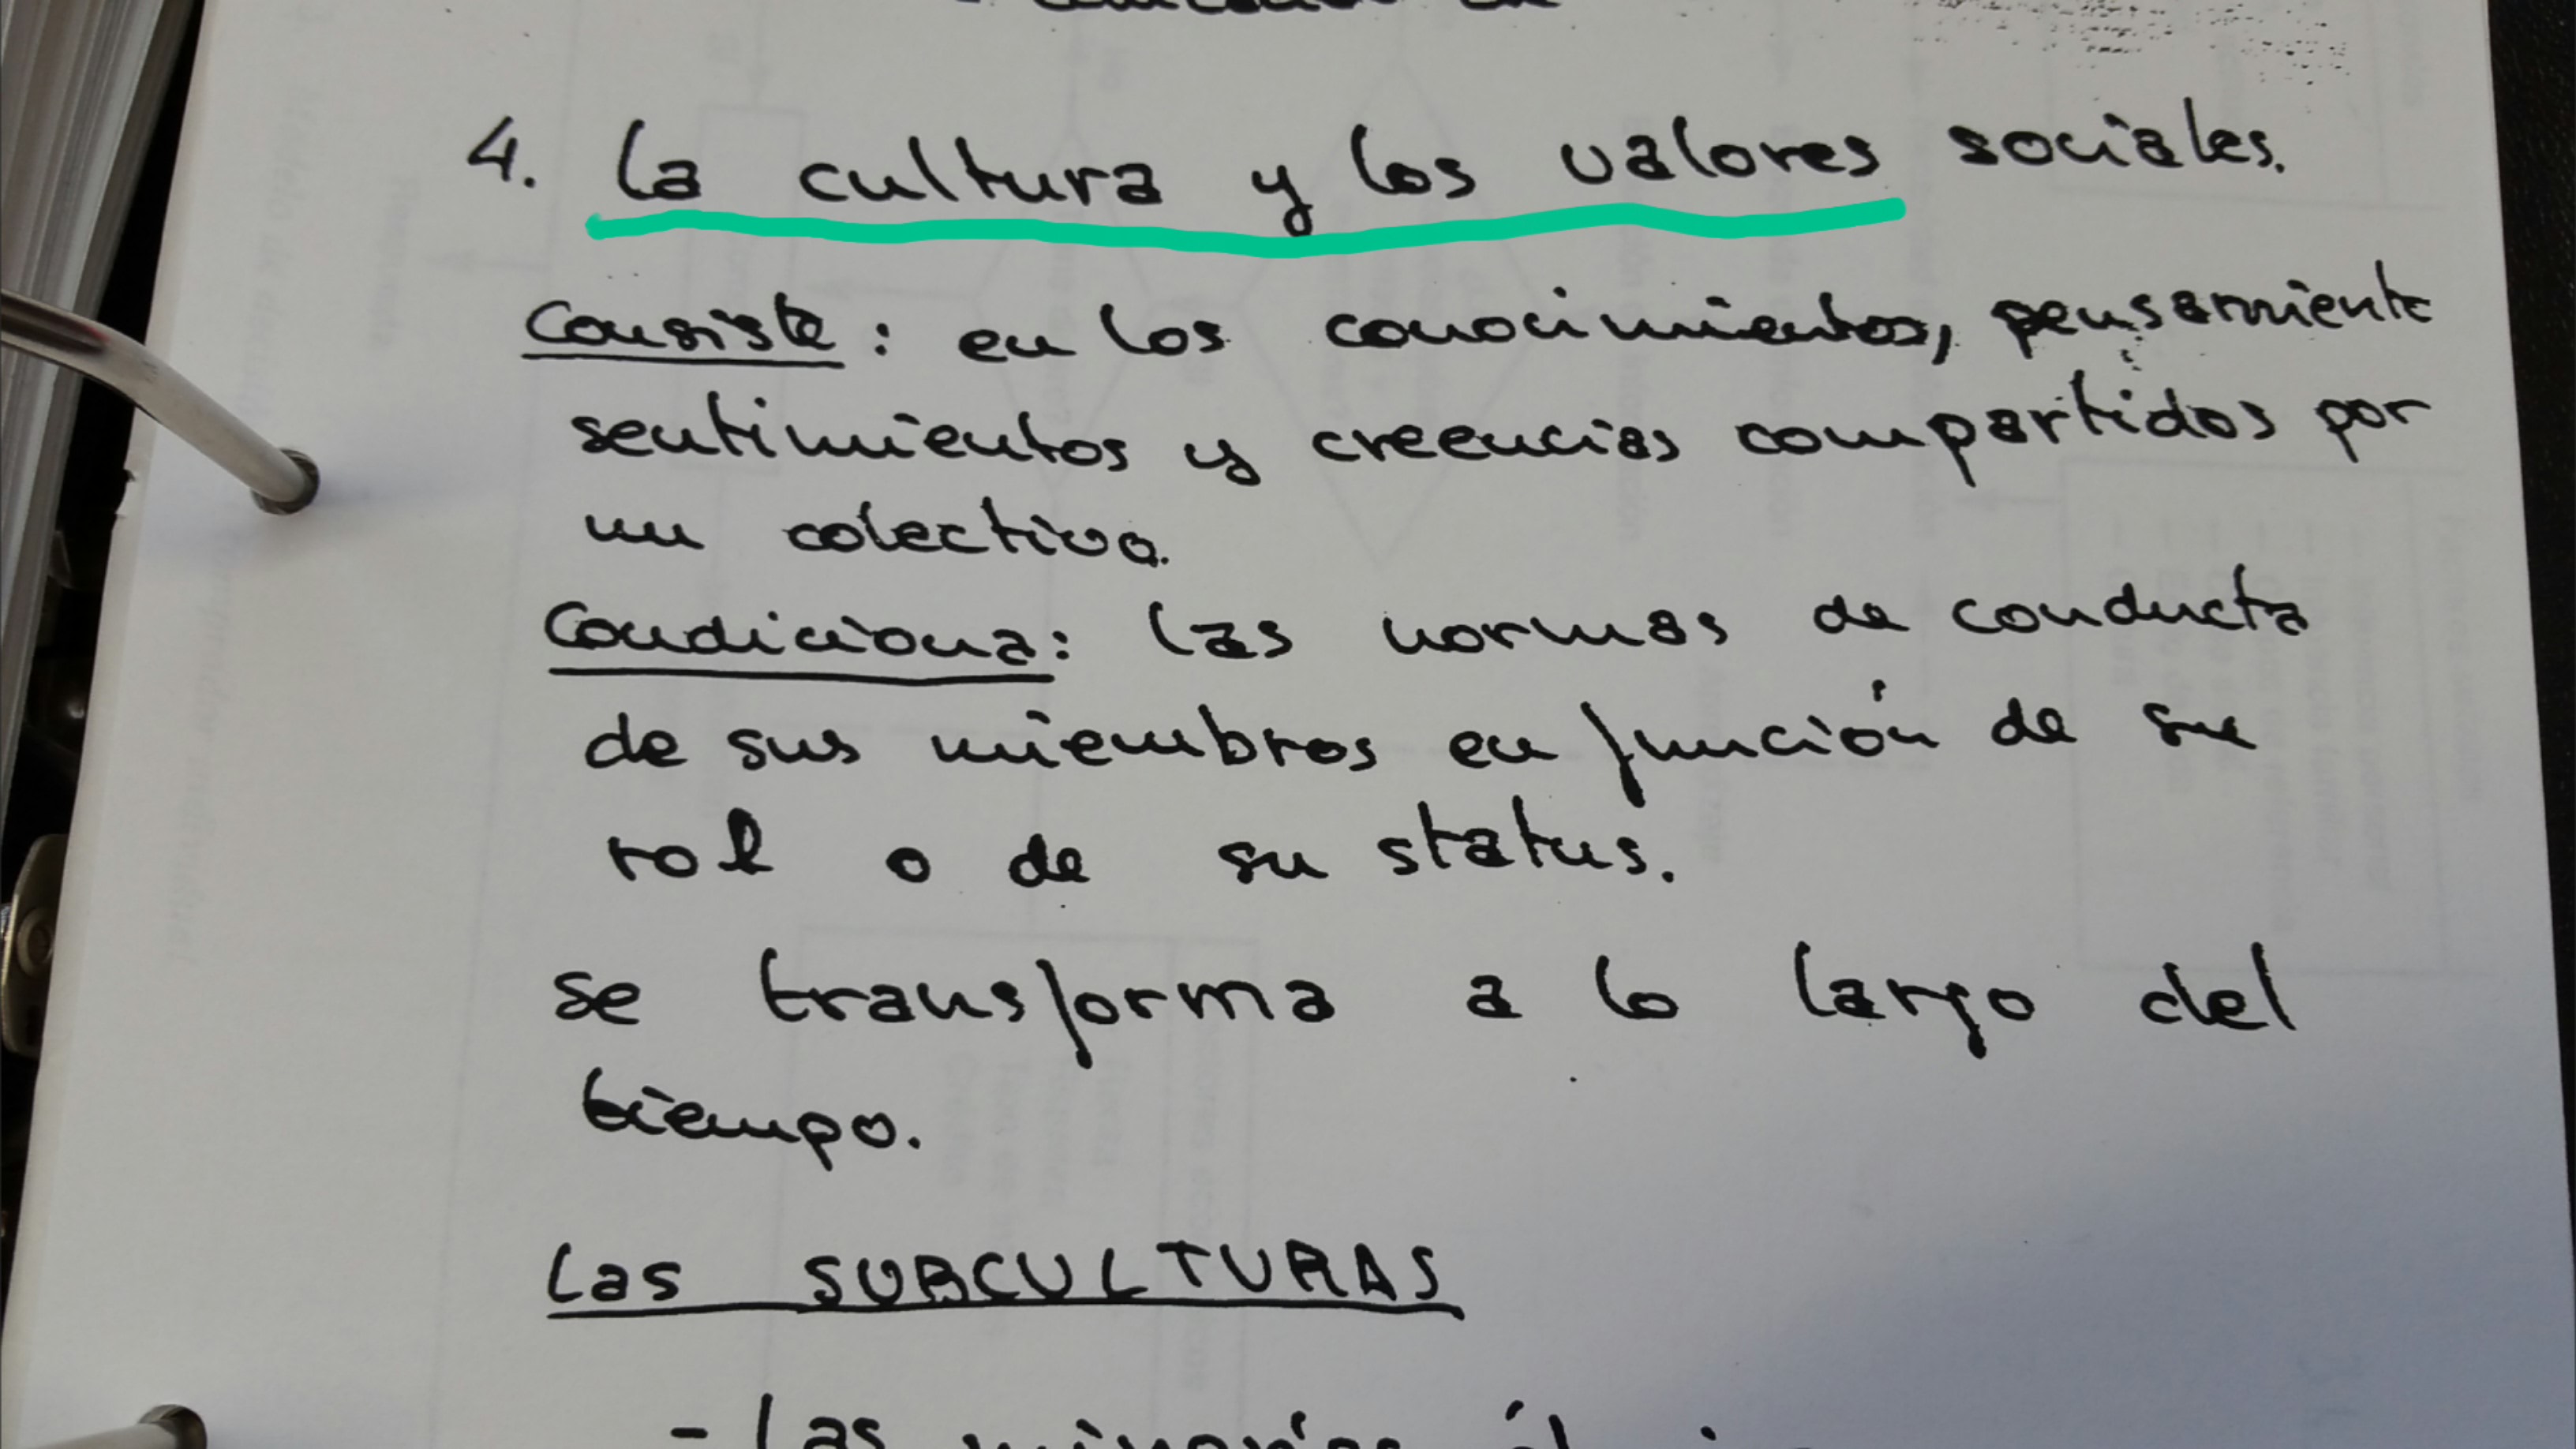 4. La cultura y los valores sociales.
Consiste: en los conocimientos, pensamiento
sentimientos y creencias compartidos por
un colectivo.
Condiciona: las normas de conducta
de sus miembros en función de su
rol o de su status.
se transforma a lo largo del
tiempo.
Las SUBCULTURAS
- Las